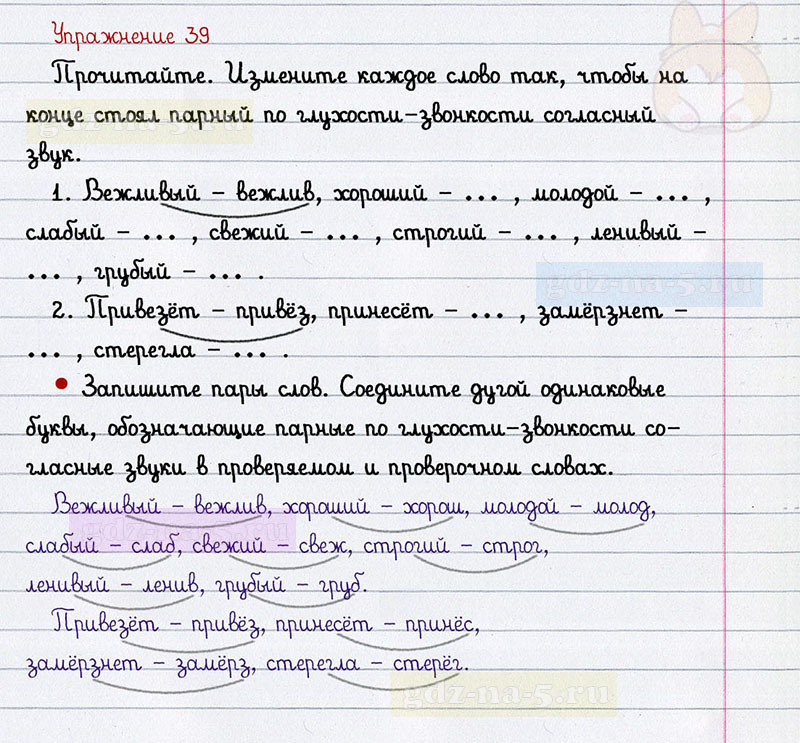 Упражнение 39
Прочитайте. Измените каждое слово так, чтобы на
конце стоял парный по глухости-звонкости согласный
звук.
1. Вежливый – вежлив, хороший – ... , молодой – ... ,
слабый – ... , свежий – ... , строгий – ... , ленивый –
... , грубый – ... .
2. Привезёт – привёз, принесёт – ... , замёрзнет –
... , стерегла – ... .
• Запишите пары слов. Соедините дугой одинаковые
буквы, обозначающие парные по глухости-звонкости со-
гласные звуки в проверяемом и проверочном словах.
Вежливый – вежлив, хороший – хорош, молодой – молод,
слабый – слаб, свежий – свеж, строгий – строг,
ленивый – ленив, грубый – груб.
Привезёт – привёз, принесёт – принёс,
замёрзнет – замёрз, стерегла – стерёг.
gdz-na-5.ru
gdz-na-5.ru
gdz-na-5.ru
gdz-na-5.ru